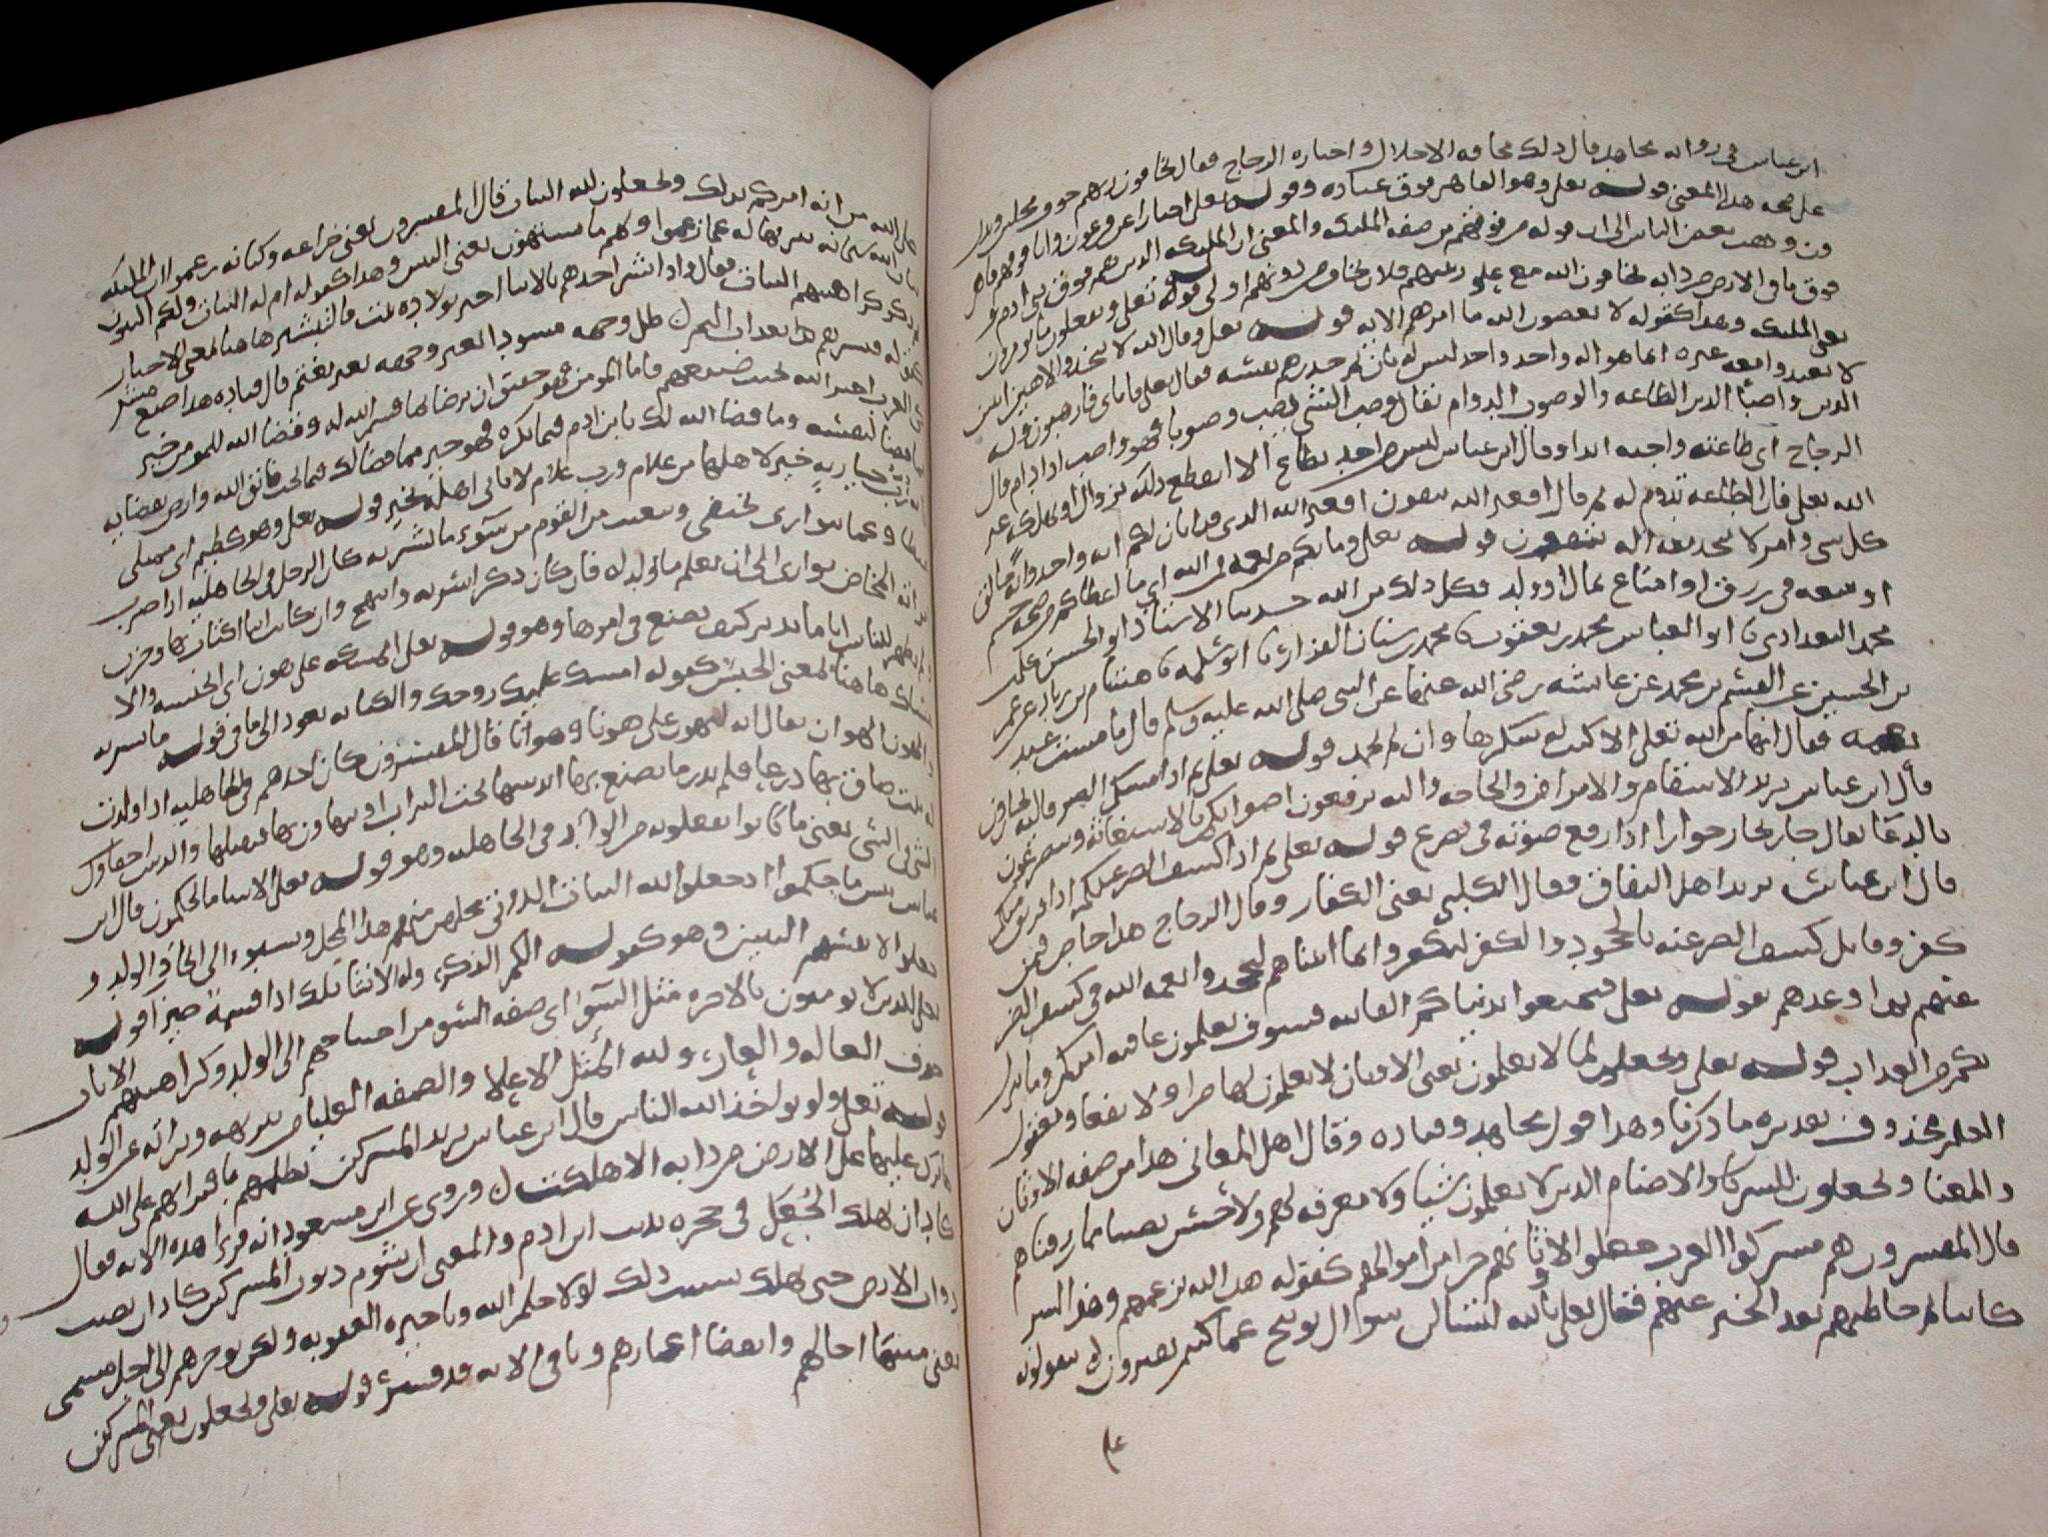 ابن عباس في رواية مجاهد قال ذلك مخافة الاجلال واختاره الزجاج فقال يخافون ربهم خوف مجلين ويدل
على صحة هذا المعنى قوله تعلى وهو القاهر فوق عباده وقوله تعلى اخبارا عن فرعون وانا فوقهم قاهر
ون وذهب بعض الناس الى ان قوله من فوقهم من صفة الملئكة والمعنى ان الملئكة الذين هم فوق بني ادم و
فوق ما في الارض من دابة يخافون الله مع علو رتبتهم فلان يخاف من دونهم اولى قوله تعلى ويفعلون ما يومرون
يعني الملئكة وهذا كقوله لا يعصون الله ما امرهم الاية قوله تعلى وقال الله لا تتخذوا الاهين اثنين
لا تعبدوا معه غيره انما هو اله واحد
الدين واصبا الدين الطاعة والوصوب الدوام يقال وصب الشي يصب وصوبا فهو واصب اذا دام قال
الزجاج اي طاعته واجبة ابدا وقال ابن عباس ليس من احد يطاع الا انقطع ذلك بزوال او هلكة غير
الله تعلى فان الطاعة تدوم له ثم قال افغير الله تتقون افغير الله الذي قد ابان لكم انه واحد وانه خالق
كل شي وامر لا تتخذ معه اله تتقون قوله تعلى وما بكم من نعمة فمن الله اي ما اعطاكم من صحة جسم
او سعة في رزق او امتاع بمال او ولد فكل ذلك من الله حدثنا الاستاذ ابو الحسن علي
محمد البغدادي نا ابو العباس محمد بن يعقوب نا محمد بن سنان القزاز نا ابو سلمة نا هشام بن زياد عن عمر
بن الحسين عن القسم بن محمد عن عايشة رضي الله عنها عن النبي صلى الله عليه وسلم قال ما مست عبد
نعمة فقال انها من الله تعلى الا كتب له شكرها وان لم يحمد قوله تعلى ثم اذا مسكم الضر فاليه تجارون
قال ابن عباس يريد الاسقام والامراض والحاجة واليه ترفعون اصواتكم بالاستغاثة وتضرعون
بالدعا يقال جار يجار جوارا اذا رفع صوته في تضرع قوله تعلى ثم اذا كشف الضر عنكم اذا فريق منكم
قال ابن عباس يريد اهل النفاق وقال الكلبي يعني الكفار وقال الزجاج هذا خاص فيمن
كفر وقابل كشف الضر عنه بالجحود والكفر ليكفروا بما اتيناهم ليجحدوا نعمة الله في كشف الضر
عنهم ثم اوعدهم بقوله تعلى فتمتعوا بدنياكم الفانية فسوف تعلمون عاقبة امركم وما ينزل
بكم من العذاب قوله تعلى ويجعلون لما لا يعلمون يعني الاوثان لا يعلمون لها ضرا ولا نفعا ومفعول
العلم محذوف تقديره ما ذكرنا وهذا قول مجاهد وقتادة وقال اهل المعاني هذا من صفة الاوثان
والمعنا ويجعلون للشركا والاصنام الذين لا يعلمون شيا ولا معرفة لهم ولا حس نصيبا مما رزقناهم
قال المفسرون هم مشركوا العرب جعلوا لاوثانهم جزا من اموالهم كقوله هذا لله بزعمهم وهذا لشر
كاينا ثم خاطبهم بعد الخبر عنهم فقال تعلى تالله لتسئلن سوال توبيخ عما كنتم تفترون تتقولون
على
على الله من انه امركم بذلك ويجعلون لله البنات قال المفسرون يعني خزاعة وكنانة زعموا ان الملئكة
بنات الله سبحانه تنزيها له عما زعموا ولهم ما يشتهون يعني البنين وهذا كقوله ام له البنات ولكم البنون
ثم ذكر كراهيتهم البنات فقال واذا بشر احدهم بالانثا اخبر بولادة بنت والتبشير هاهنا بمعنى الاخبار
كقوله فبشرهم بعذاب اليم ظل وجهه مسودا تغير وجهه تغير مغتم قال قتادة هذا صنيع مشر
كي العرب اخبر الله بخبث صنيعهم فاما المومن فهو حقيق ان يرضا بما قسم الله له وقضا الله للمومن خير
مما قضا لنفسه وما قضا الله لك يا بن ادم فيما تكره فهو خير مما قضا لك فيما تحب فاتق الله وارض بقضايه
رب جارية خير لاهلها من غلام ورب غلام لا ياتي اهله بخير قوله تعلى وهو كظيم اي ممتلى
غيظا وغما يتوارى يختفي ويتغيب من القوم من سوء ما بشر به كان الرجل في الجاهلية اذا ضرب
امراته المخاض توارى الى ان يعلم ما يولد له فان كان ذكرا سر به وابتهج وان كانت انثا اكتاب بها وحزن
ولم يظهر للناس اياما يدبر كيف يصنع في امرها وهو قوله تعلى ايمسكه على هون اي ايحبسه والا
مساك هاهنا بمعنى الحبس كقوله امسك عليك زوجك والكناية تعود الى ما في قوله ما بشر به
والهون الهوان يقال انه ليهون على هونا وهوانا قال المفسرون كان احدهم في الجاهلية اذا ولدت
له بنت ضاق بها ذرعا فلم يدر ما يصنع بها ايدسها تحت التراب او يتهاون بها فيمسكها والدس اخفاوك
الشي في الشي يعني ما كانوا يفعلونه من الواد في الجاهلية وهو قوله تعلى الا سا ما يحكمون قال ابن
عباس بيس ما حكموا اذ جعلوا لله البنات اللواتي محلهن منهم هذا المحل ونسبوه الى اتخاذ الولد و
جعلوا لانفسهم البنين وهو كقوله الكم الذكر وله الانثا تلك اذا قسمة ضيزا قوله
تعلى للذين لا يومنون بالاخرة مثل السوا اي صفة السو من احتياجهم الى الولد وكراهيتهم الاناث
خوف العيلة والعار ولله المثل الاعلا والصفة العليا من تنزهه وبراته عن الولد
قوله تعلى ولو يواخذ الله الناس قال ابن عباس يريد المشركين بظلمهم بافترايهم على الله
ما ترك عليها على الارض من دابة الا هلكت وروي عن ابن مسعود انه قرا هذه الاية فقال
كاد ان يهلك الجعل في جحره بذنب ابن ادم والمعنى ان شوم ذنوب المشركين كاد ان يصيب
دواب الارض حتى يهلك بسبب ذلك لولا حلم الله وتاخيره العقوبة ولكن يوخرهم الى اجل مسمى
يعني منتها اجالهم وانقضا اعمارهم وباقي الاية قد فسر قوله تعلى ويجعلون يعني المشركين